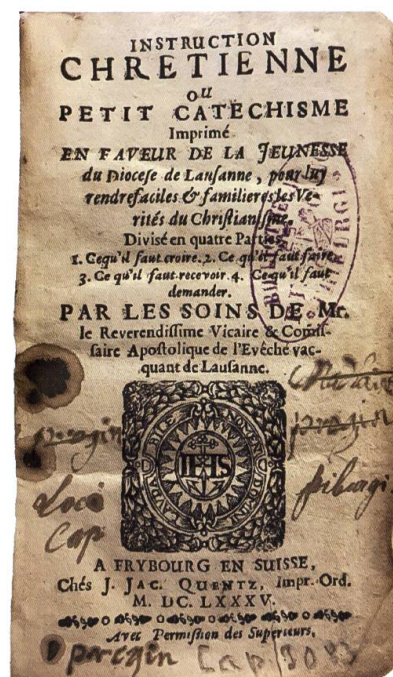 INSTRUCTION
CHRETIENNE
OU
PETIT CATECHISME
Imprimé
EN FAVEUR DE LA JEUNESSE
du Diocese de Lausanne, pour luy
rendre faciles & familieres les Ve-
rités du Christianisme.
Divisé en quatre Parties
1. Ce qu'il faut croire. 2. Ce qu'il faut faire
3. Ce qu'il faut recevoir. 4. Ce qu'il faut
demander.
PAR LES SOINS DE Mr.
le Reverendissime Vicaire & Comis-
saire Apostolique de l'Evêché vac-
quant de Lausanne.
IHS
Loco
Cap
A FRYBOURG EN SUISSE,
Chés J. JAC. QUENTZ, Impr. Ord.
M. DC. LXXXV.
Avec Permission des Superieurs,